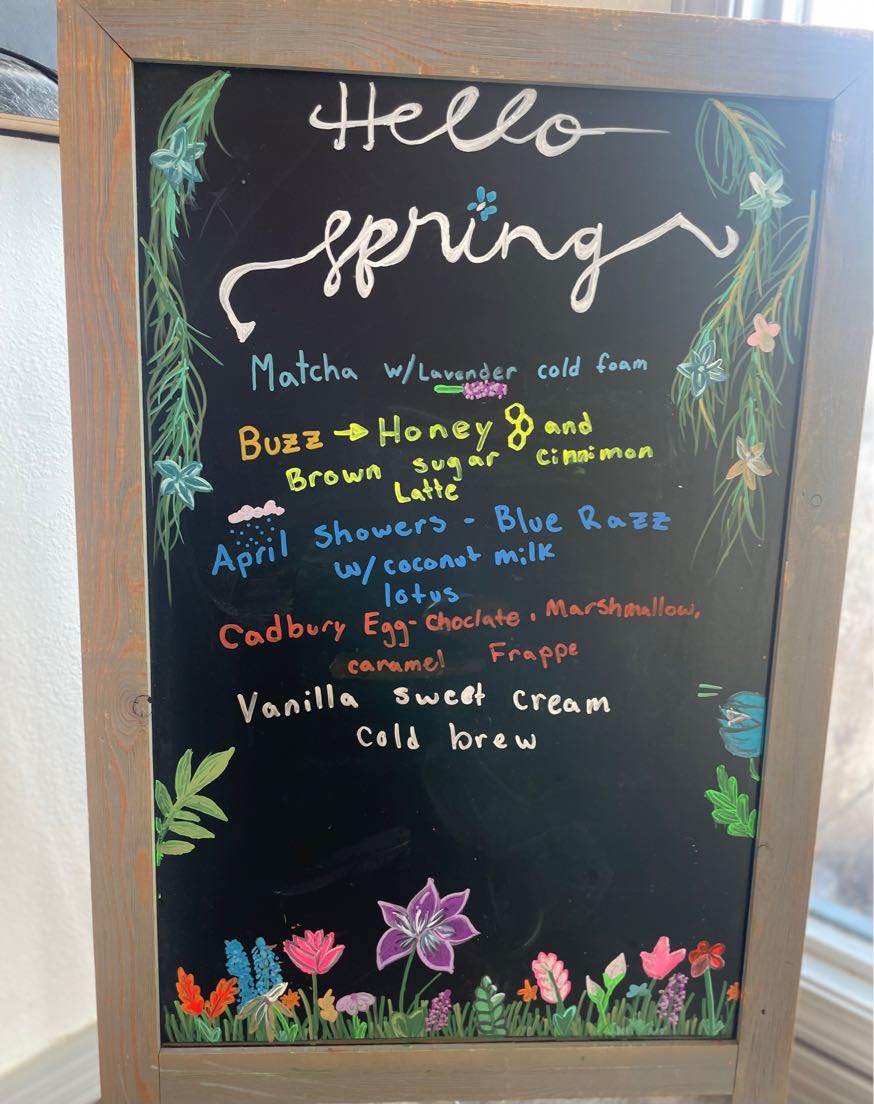 Hello
spring
Matcha w/Lavender cold foam
Buzz → Honey and
Brown sugar Cinnimon
Latte
April Showers - Blue Razz
w/coconut milk
lotus
Cadbury Egg-Choclate, Marshmallow,
caramel Frappe
Vanilla sweet cream
cold brew